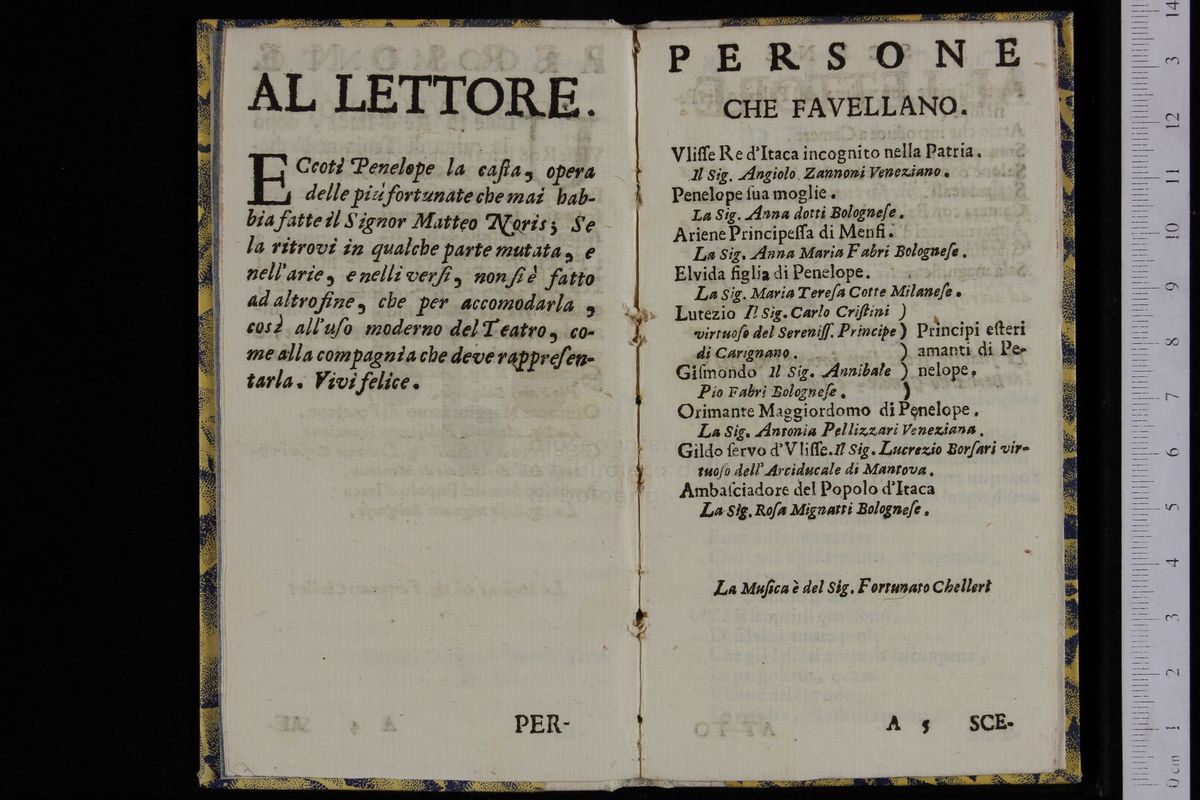 AL LETTORE.
ECcoti Penelope la casta, opera
delle più fortunate che mai hab-
bia fatte il Signor Matteo Noris; Se
la ritrovi in qualche parte mutata, e
nell'arie, e nelli versi, non si è fatto
ad altro fine, che per accomodarla,
così all'uso moderno del Teatro, co-
me alla compagnia che deve rappresen-
tarla. Vivi felice.
PER-
PERSONE
CHE FAVELLANO.
Vlisse Re d'Itaca incognito nella Patria.
Il Sig. Angiolo Zannoni Veneziano.
Penelope sua moglie.
La Sig. Anna dotti Bolognese.
Ariene Principessa di Menfi.
La Sig. Anna Maria Fabri Bolognese.
Elvida figlia di Penelope.
La Sig. Maria Teresa Cotte Milanese.
Lutezio Il Sig. Carlo Cristini )
virtuoso del Sereniss. Principe ) Principi esteri
di Carignano. ) amanti di Pe-
Gismondo Il Sig. Annibale ) nelope.
Pio Fabri Bolognese. )
Orimante Maggiordomo di Penelope.
La Sig. Antonia Pellizzari Veneziana.
Gildo servo d'Vlisse. Il Sig. Lucrezio Borsari vir-
tuoso dell'Arciducale di Mantova.
Ambasciadore del Popolo d'Itaca
La Sig. Rosa Mignatti Bolognese.
La Musica è del Sig. Fortunato Chelleri
A 5 SCE-